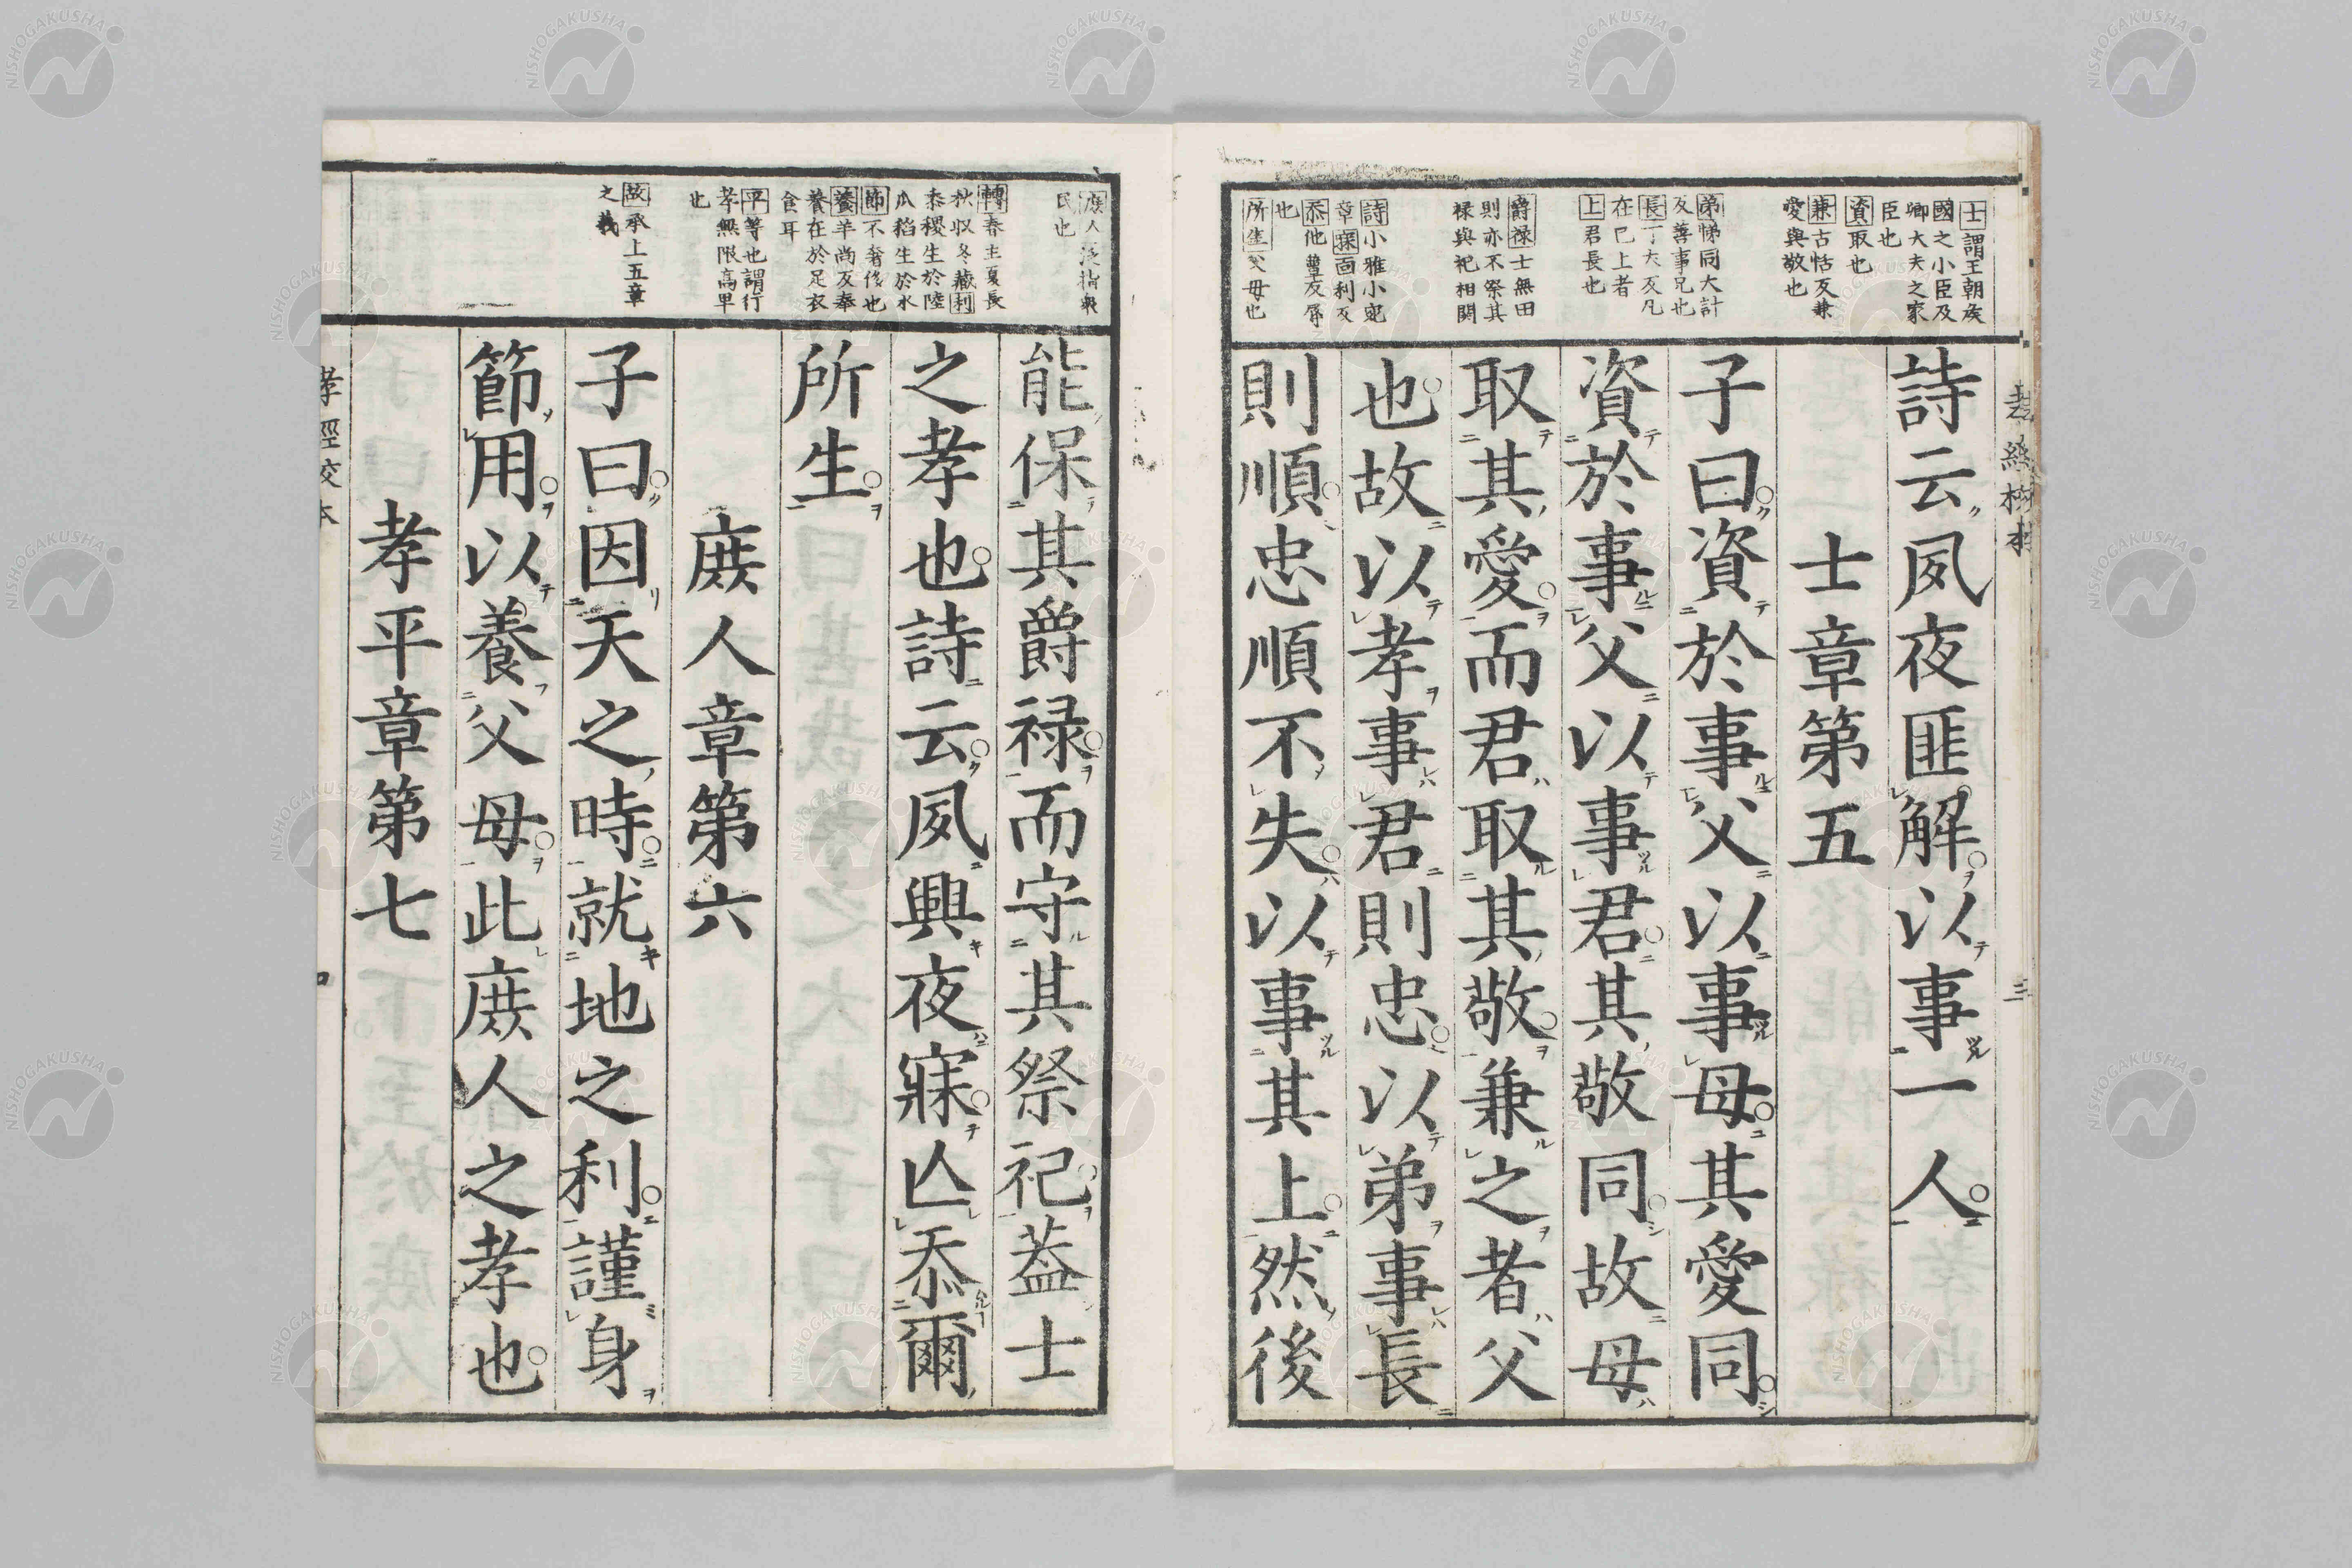 士謂王朝矦
國之小臣及
卿大夫之家
臣也
資取也
兼古恬反兼
愛與敬也
弟悌同大計
反善事兄也
長丁丈反凡
在己上者
上君長也
爵禄士無田
則亦不祭其
禄與祀相関
詩小雅小宛
章寐面利反
忝他簟反辱
也
所生父母也
詩云夙夜匪解以事一人
士章第五
子曰資於事父以事母其愛同
資於事父以事君其敬同故母
取其愛而君取其敬兼之者父
也故以孝事君則忠以弟事長
則順忠順不失以事其上然後
三
庶人泛指衆
民也
轉春生夏長
秋収冬藏利
黍稷生於陸
瓜稻生於水
節不奢侈也
養羊尚反奉
養在於足衣
食耳
平等也謂行
孝無限高卑
也
故承上五章
之義
能保其爵禄而守其祭祀葢士
之孝也詩云夙興夜寐亾忝爾
所生
庶人章第六
子曰因天之時就地之利謹身
節用以養父母此庶人之孝也
孝平章第七
孝經校本
NISHOGAKUSHA